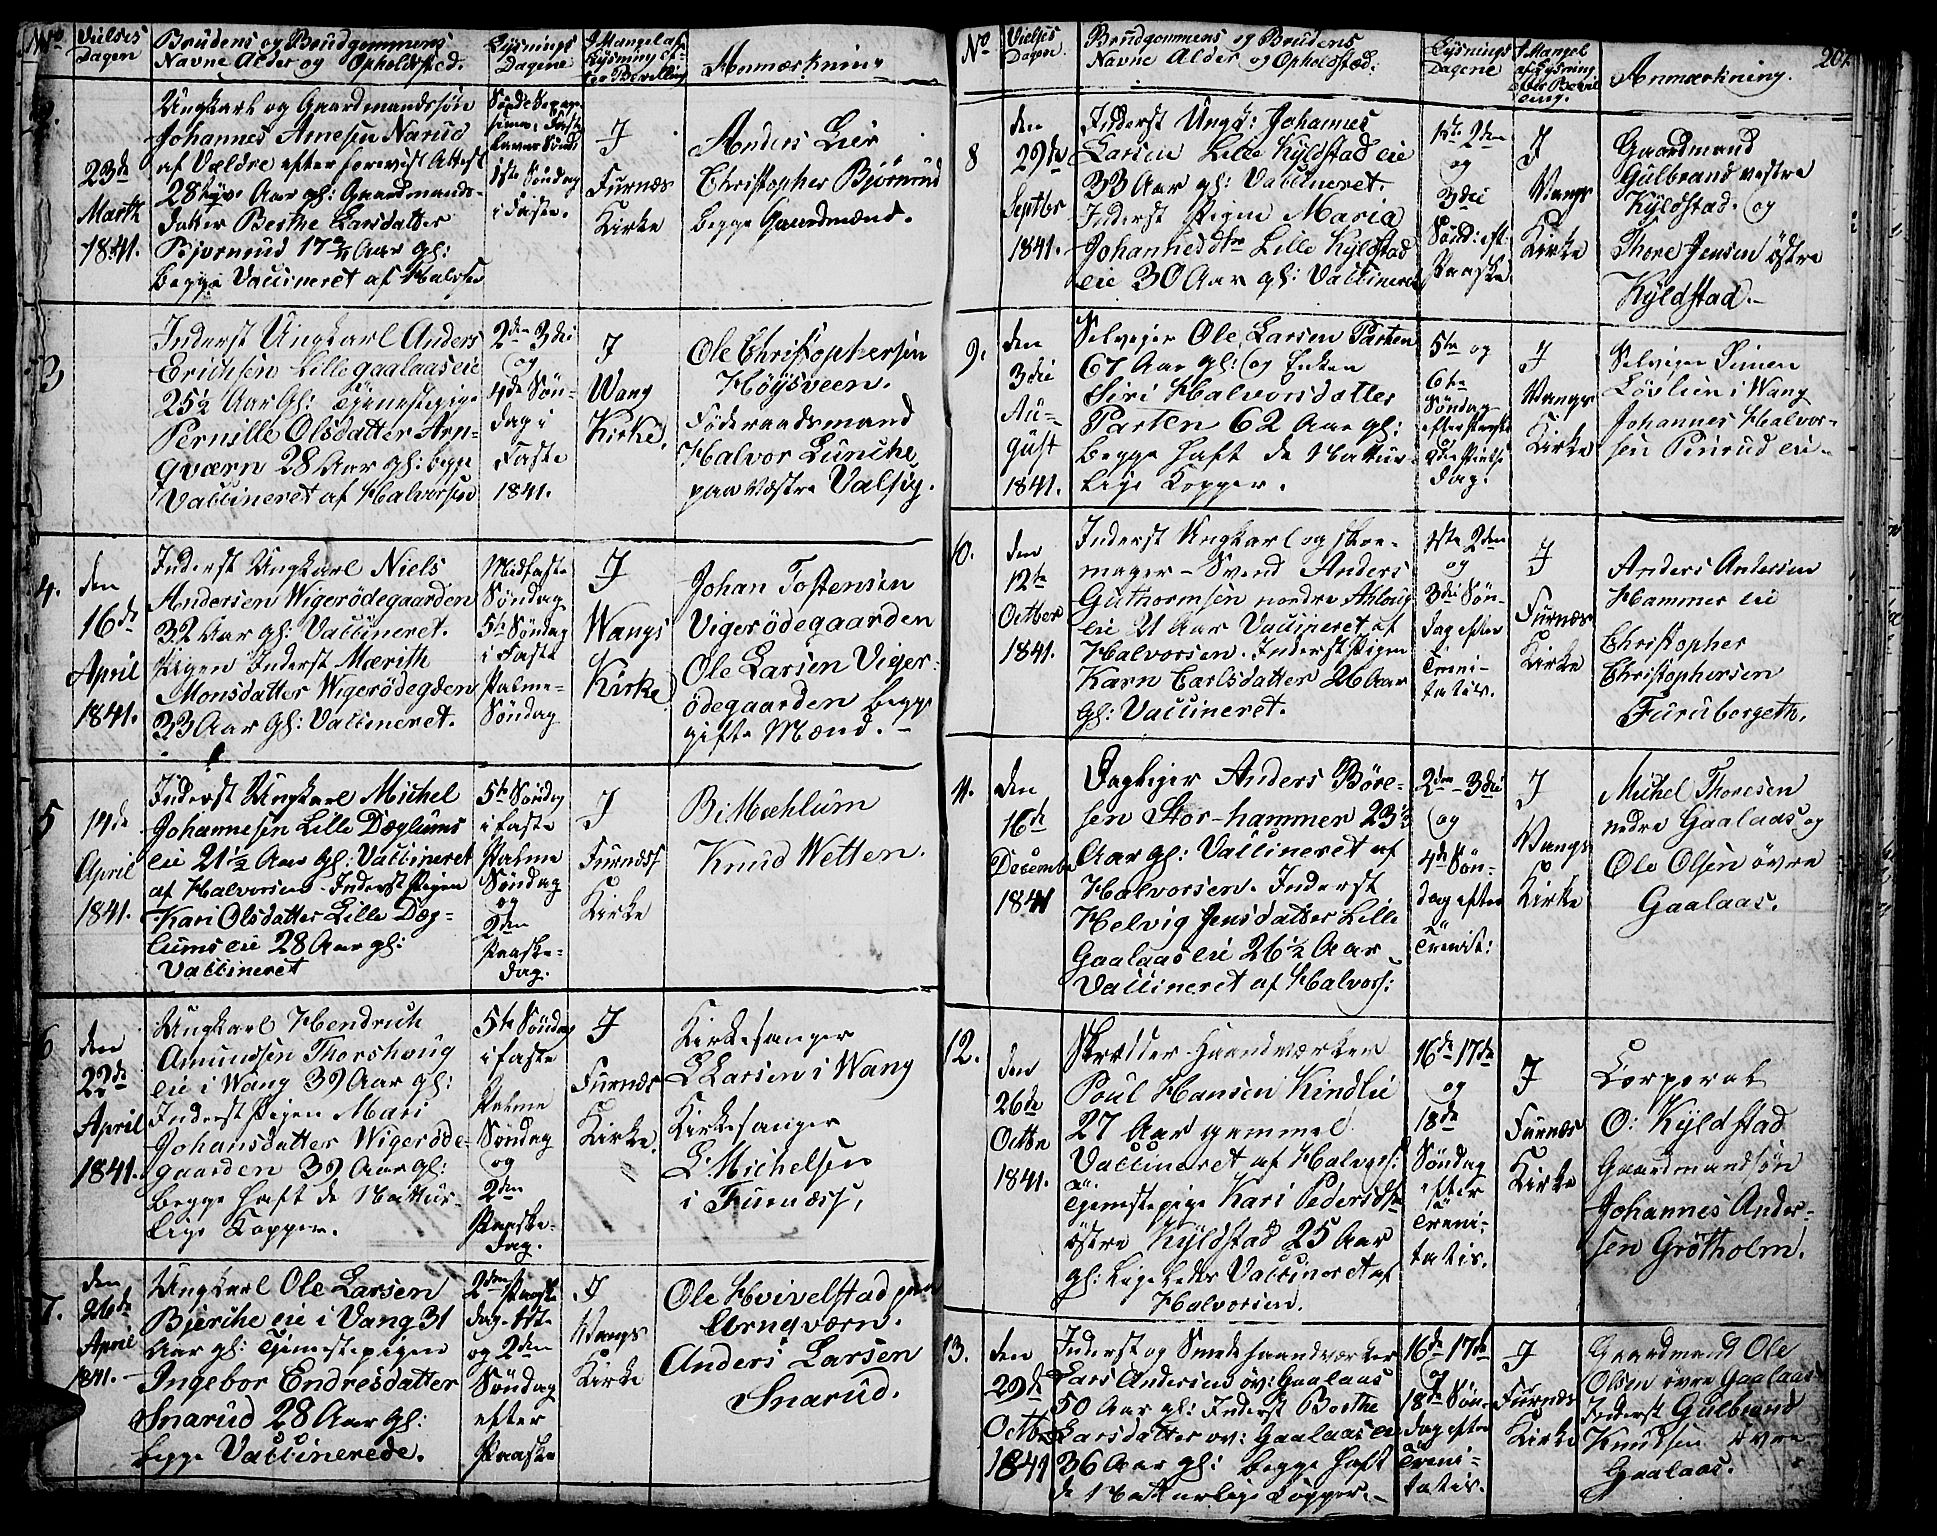 No Vielses Dagen
Brudens og Brudgommens
Navne Alder og Opholdsted.
Lysnings
Dagene
I Mangel af
Lysning ef-
ter Bevilling
Anmærkning
2.
23de
Marth
1841.
Ungkarl og Gaardmandssøn
Johannes Arnesen Narud
af Vældre efter forevist Attest
28 Aar gl: Gaardmands-
datter Berthe Larsdatter
Bjørnrud 17 Aar gl:
begge Vaccineret af Halvorsen
1ste Søndag
i Faste.
I
Furnæs
Kirke
Anders Lier
Christopher Bjørnrud
begge Gaardmænd.
3
Inderst Ungkarl Anders
Erichsen Lille gaalaas eie
25½ Aar Gl: Tjenestepige
Pernille Olsdatter Arn-
qværn 28 Aar gl: begge
Vaccineret af Halvorsen
2den 3die
og
4de Søn-
dag i
Faste
1841.
I
Wang
Kirke.
Ole Christophersen
Høysveen.
Føderaadsmand
Halvor Lunche
paa Væstre Valsig.
4.
den
16de
April
1841.
Inderst Ungkarl Niels
Andersen Wigerödegaarden
32 Aar gl: Vaccineret.
Pigen Inderst Mærith
Monsdatter Wigerödegden
33 Aar gl: Vaccineret.
Midfaste
Søndag
5te Søndag
i Faste
Palme-
Søndag
I
Wangs
Kirke
Johan Tostensen
Vigerödegaarden
Ole Larsen Viger-
ödegaarden begge
gifte Mænd.
5
14de
April
1841.
Inderst Ungkarl Michel
Johannesen Lille Dæglums
eie 21½ Aar gl: Vaccineret
af Halvorsen. Inderst Pigen
Kari Olsdatter Lille Dæg-
lums eie 28 Aar gl:
Vaccineret
5te Søndag
i Faste
Palme
Søndag
og
2den
Paaske-
dag.
I
Furnæs
Kirke
B: Mæhlum
Knud Wetten.
6
den
22de
April
1841.
Ungkarl Hendrich
Amundsen Thorshoug
eie i Wang 39 Aar gl:
Inderst Pigen Mari
Johansdatter Wigeröde-
gaarden 39 Aar gl:
begge haft de Nattur-
lige Kopper.
5te Søndag
i Faste
Palme
Søndag
og
2den
Paaske-
dag.
I
Furnæs
Kirke.
Kirkesanger
L Larsen i Wang
Kirkesanger
L: Michelsen
i Furnæss,
7.
den
26de
April
1841.
Ungkarl Ole Larsen
Bjerche eie i Vang 31
Aar gl: Tjenestepigen
Ingebor Endresdatter
Snarud 28 Aar gl:
begge Vaccinerede.
2den Paaske
dag. 1ste
og 2den
Søndag
efter
Paaske
I
Wangs
Kirke
Ole Hvivelstad
Arnqværn.
Anders Larsen
Snarud.
No
Vielses
Dagen.
Brudgommens og Brudens
Navne Alder og Opholdsted.
Lysnings
Dagene
I Mangel
af Lysning
efter Bevil
ling.
Anmærkning.
207
8
den
29de
Septbr
1841.
Inderst Ungk: Johannes
Larsen Lille Kyldstad eie
33 Aar gl: Vaccineret.
Inderst Pigen Maria
Johannesdtr Lille Kyldstad
eie 30 Aar gl: Vaccineret
1ste 2den
og
3die
Sønd: eft.
Paaske
I
Wangs
Kirke
Gaardmand
Gulbrand vestre
Kyldstad. og
Thore Jensen östre
Kyldstad.
9.
den
3die
Au-
gust
1841.
Selveger Ole Larsen Parten
67 Aar gl: og Enken
Siri Halvorsdatter
Parten 62 Aar gl:
begge haft de Nattur-
lige Kopper.
5te og
6te
Søndag
efter Paaske
Dag.
I
Wangs
Kirke
Selveger Simen
Løvlien i Wang
Johannes Halvor-
sen Pinrud eie
10.
den
12te
Octber
1841.
Inderst Ungkarl og Skoe-
mager-Svend Anders
Guthormsen nordre Ahloug
eie 21 Aar Vaccineret af
Halvorsen. Inderst Pigen
Karn Carlsdatter 26 Aar
gl: Vaccineret.
1ste 2den
og
3die Søn-
dag efter
Treni-
tatis.
I
Furnæs
Kirke
Anders Andersen
Hammer eie
Christopher
Christophersen
Furuborgeth.
11.
den
16de
December
1841
Dagleier Anders Börre-
sen Stor-hammer 23½
Aar gl: Vaccineret af
Halvorsen. Inderst
Helvig Jensdatter Lille
Gaalaas eie 26½ Aar
Vaccineret af Halvors:
2den 3die
og
4de Søn-
dag efter
Trenit:
I
Wangs
Kirke
Michel Thoresen
nedre Gaalaas og
Ole Olsen övre
Gaalaas.
12.
den
26de
Octbr
1841.
Skrædder Haandværker
Poul Hansen Kindlie
27 Aar gammel
Vaccineret af Halvors:
Tjenestepige Kari Pedersdtr
östre Kyldstad 25 Aar
gl: Ligeledes Vaccineret af
Halvorsen.
16de 17de
og
18de
Søndag
efter
Treni-
tatis.
I
Furnæs
Kirke
Corporal
O: Kyldstad
Gaardmandsøn
Johannes Ander-
sen Grötholm.
13.
den
29de
Octbr
1841
Inderst og Smede haandværker
Lars Andersen öv: Gaalaas
50 Aar gl: Inderst Berthe
Larsdatter ov: Gaalaas eie
36 Aar gl: begge haft
de Natturlige Kopper.
16de 17de
og
18de Søn-
dag efter
Treni-
tatis.
I
Furnæs
Kirke
Gaardmand Ole
Olsen övre Gaalaas
Inderst Gulbrand
Knudsen övre
Gaalaas.